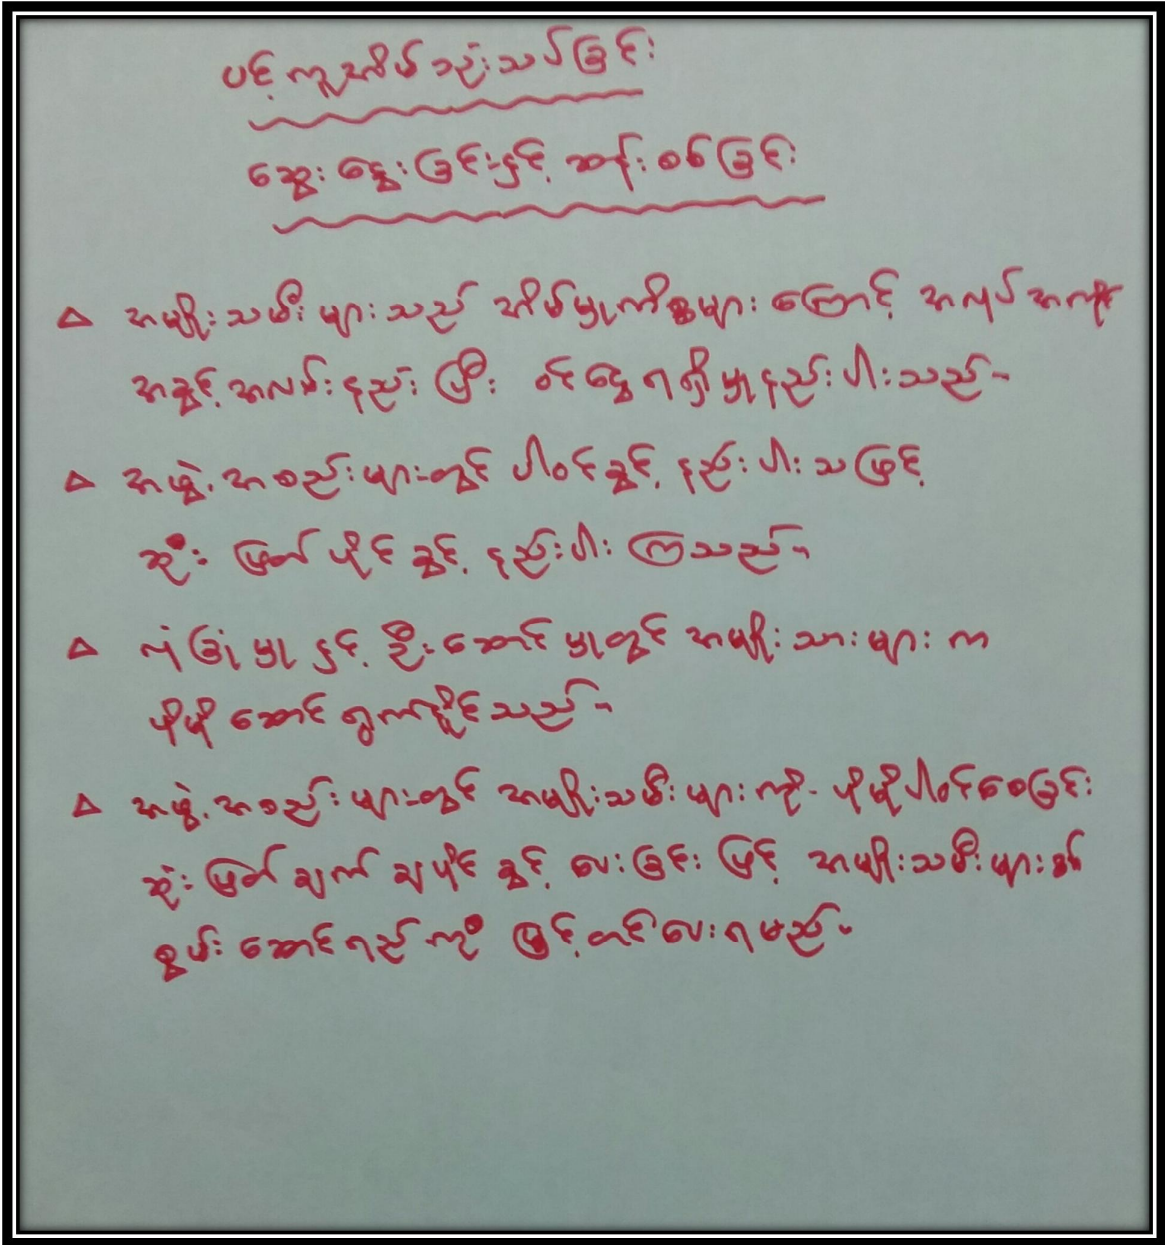 ပင့်ကူအိမ်သုံးသပ်ခြင်း
ဆွေးနွေးခြင်းနှင့် ဆန်းစစ်ခြင်း
△ အမျိုးသမီးများသည် အိမ်မှုကိစ္စများကြောင့် အလုပ်အကိုင်
အခွင့်အလမ်းနည်းပြီး ဝင်ငွေရရှိမှုနည်းပါးသည်။
△ အဖွဲ့အစည်းများတွင် ပါဝင်ခွင့် နည်းပါးသဖြင့်
ဆုံးဖြတ်ပိုင်ခွင့် နည်းပါးကြသည်။
△ လုံခြုံမှုနှင့် ဦးဆောင်မှုတွင် အမျိုးသားများက
ပိုမိုဆောင်ရွက်နိုင်သည်။
△ အဖွဲ့အစည်းများတွင် အမျိုးသမီးများကို ပိုမိုပါဝင်စေခြင်း
ဆုံးဖြတ်ချက်ချပိုင်ခွင့်ပေးခြင်းဖြင့် အမျိုးသမီးများ၏
စွမ်းဆောင်ရည်ကို မြှင့်တင်ပေးရမည်။